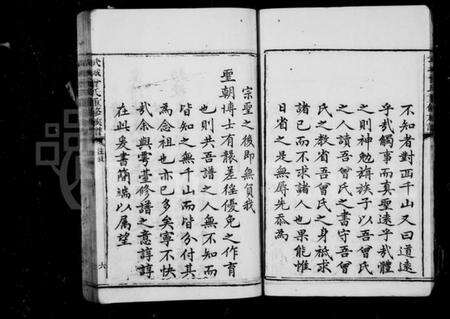 不知者對面千山又曰道遠
乎哉觸事而真聖遠乎哉體
之則神勉旃族子以吾曾氏
之人讀吾曾氏之書守吾曾
氏之教省吾曾氏之身祗求
諸已而不求諸人也果能惟
日省之是無辱先忝為
宗聖之後即無負我
聖朝博士有額差徭優免之作育
也則共吾譜之人無不知而
皆知之無千山而皆分付其
為念祖也亦已多矣寧不快
哉余與雩臺修譜之意諄諄
在此爰書簡端以属望
武城曾氏重修族譜
六